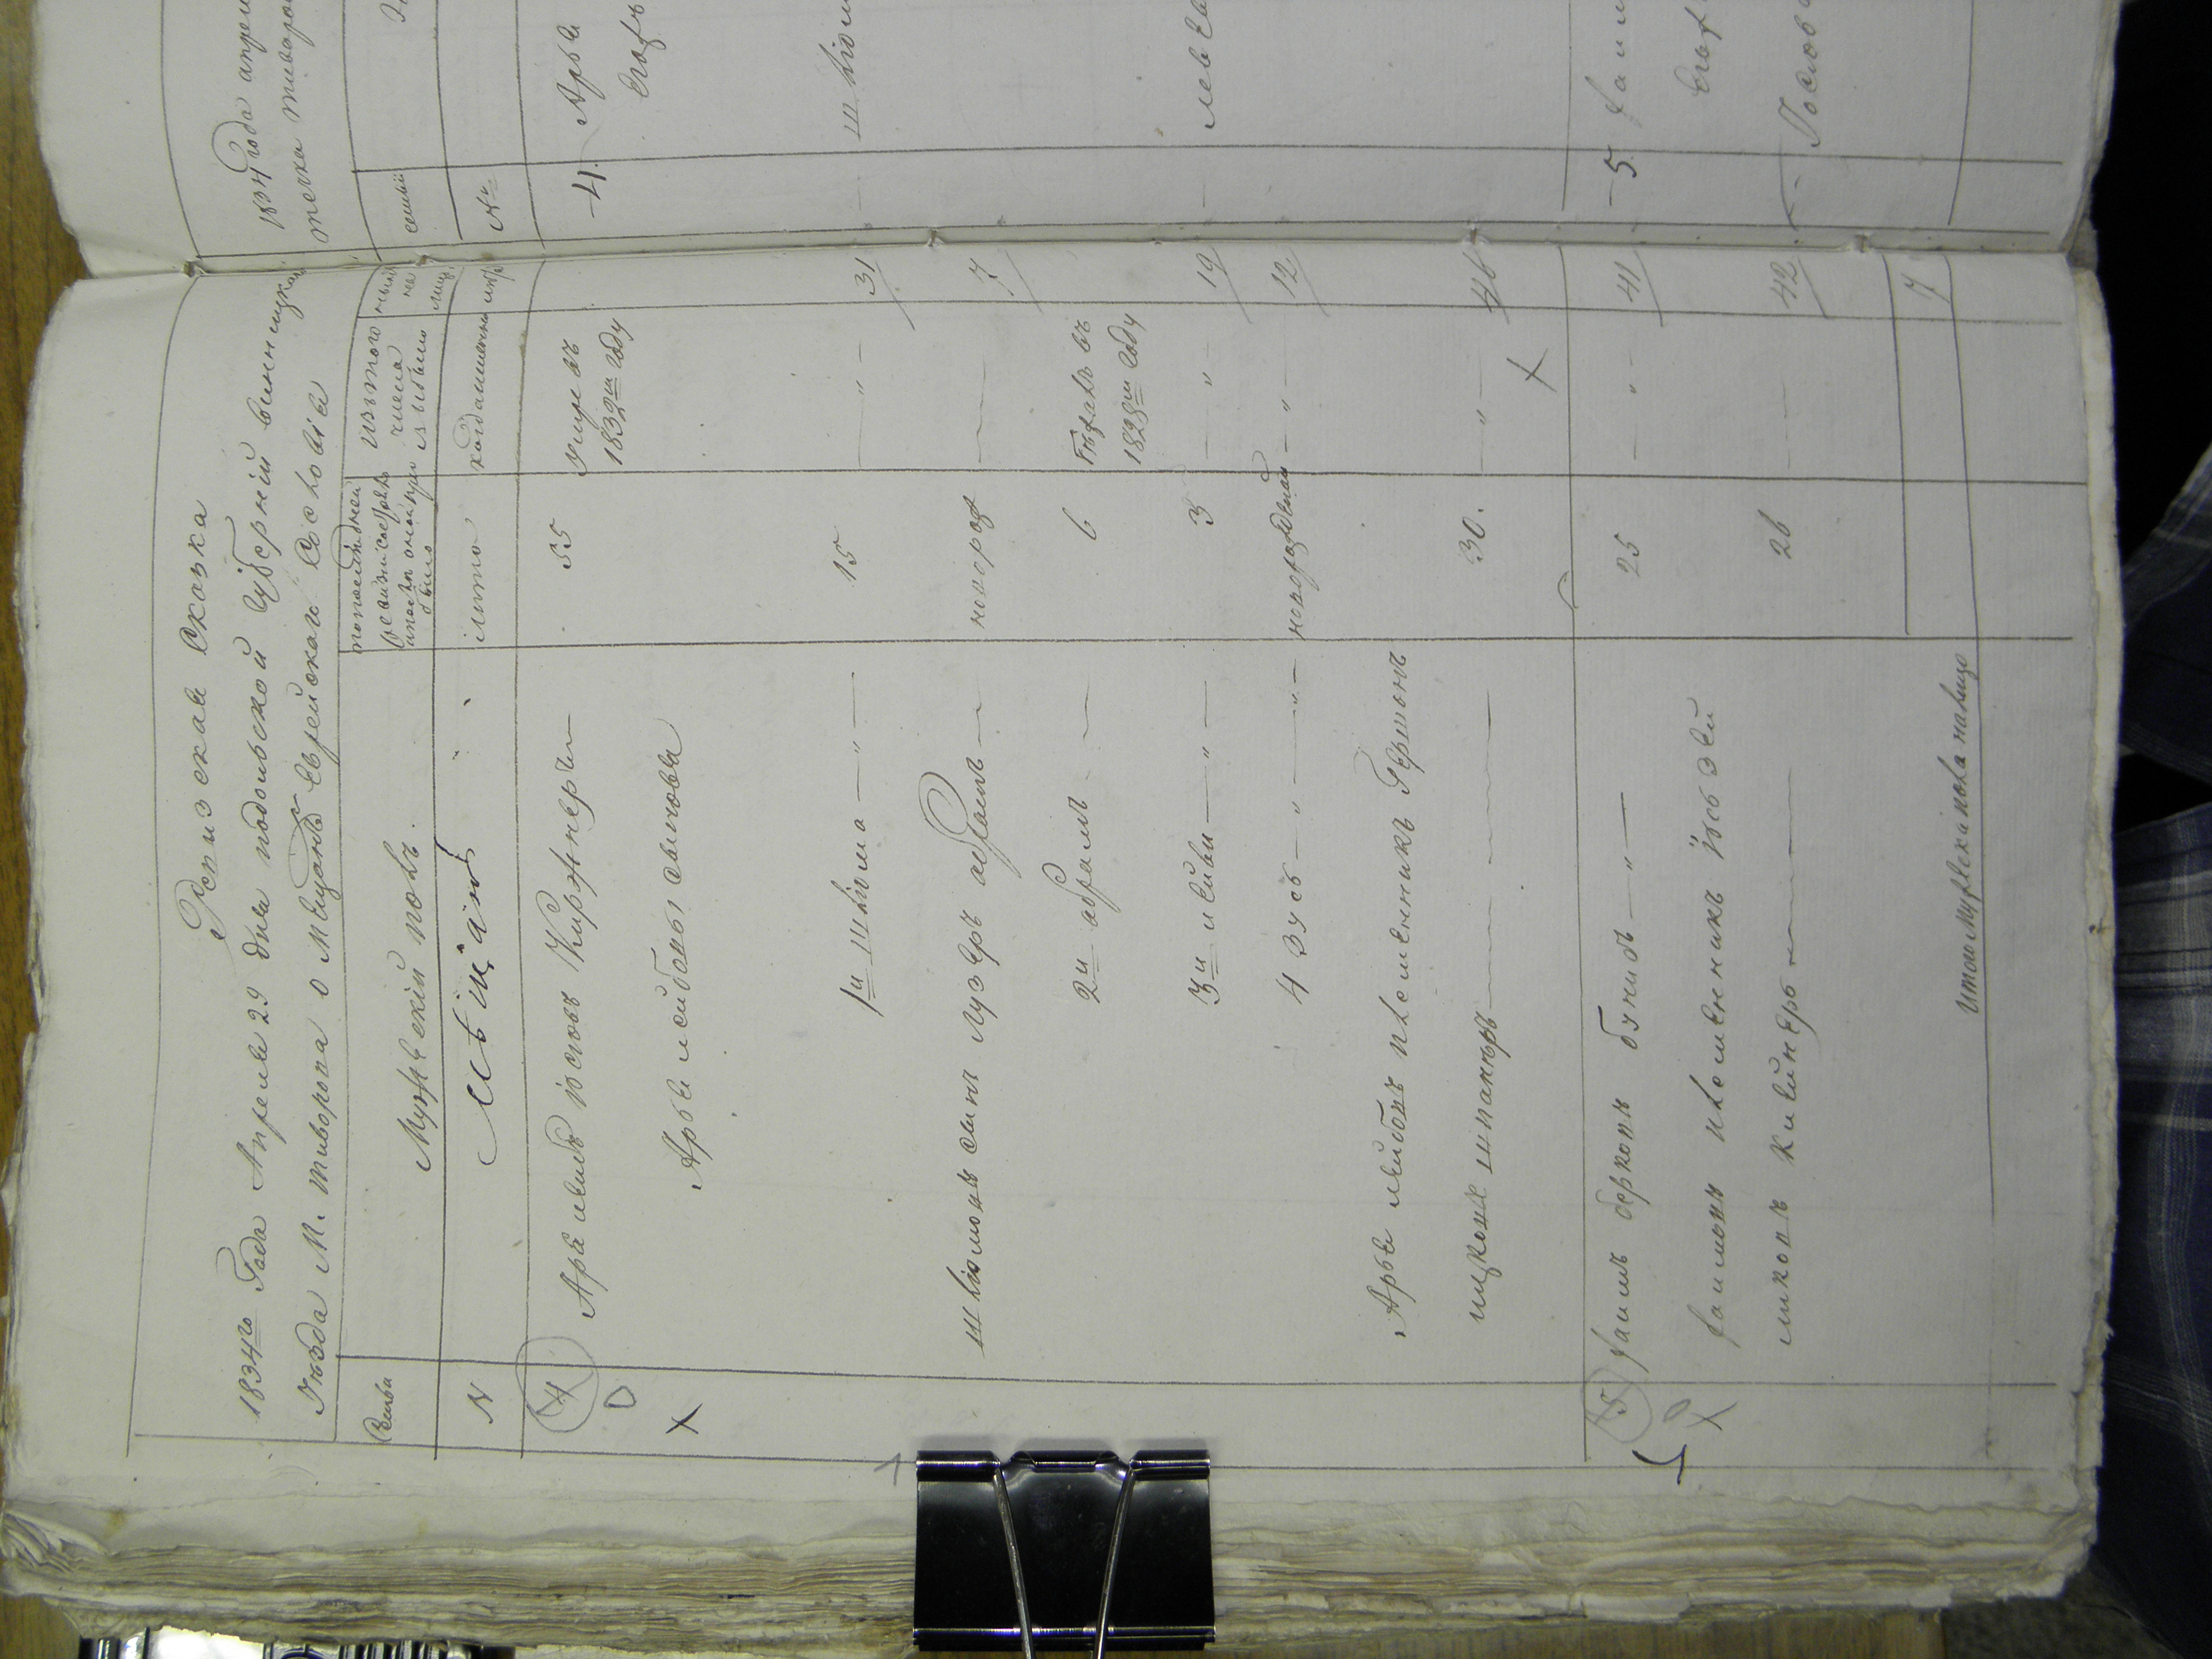 Ревизская Сказка
1834го Года Апреля 29 дня подольской Губерній винницкаго
Уезда М. тиврова о мещанъ еврейского Сословія
Семьи
Мужеский полъ.
по последней ревизіи состояло и после оной прибыло
изътого числа выбыло
ныне на лицо
N
Мѣщанѣ
лета
когда именно
лета
4 Арья лейбъ іосіовъ Киржнеръ 55 умре въ 1832м Году
Арьи лейбовы сыновья
1й Шліома — „ — 15 — „ — 31
шліомовъ сынъ Лузеръ абрамъ — новорож — 7
2й абрамъ — 6 Бежалъ въ 1828м Году
3й лейви — „ — 3 — „ — 19
4 Зусь — „ — „ — новорожденый — „ — 12
Арьи лейбовъ племенникъ Гершонъ
ицковъ шпанюръ — 30. — „ — 46
5 хаимъ берковъ бунисъ — „ — 25 — „ — 41
хаимовъ племенникъ іось зей
миковъ клейнеръ — 26 — 42
7
итого мужеска пола налицо
1834 года апрел
течка тивров
семьи
N
4. Арьи
шліом
лев
5. хаим
Іослов